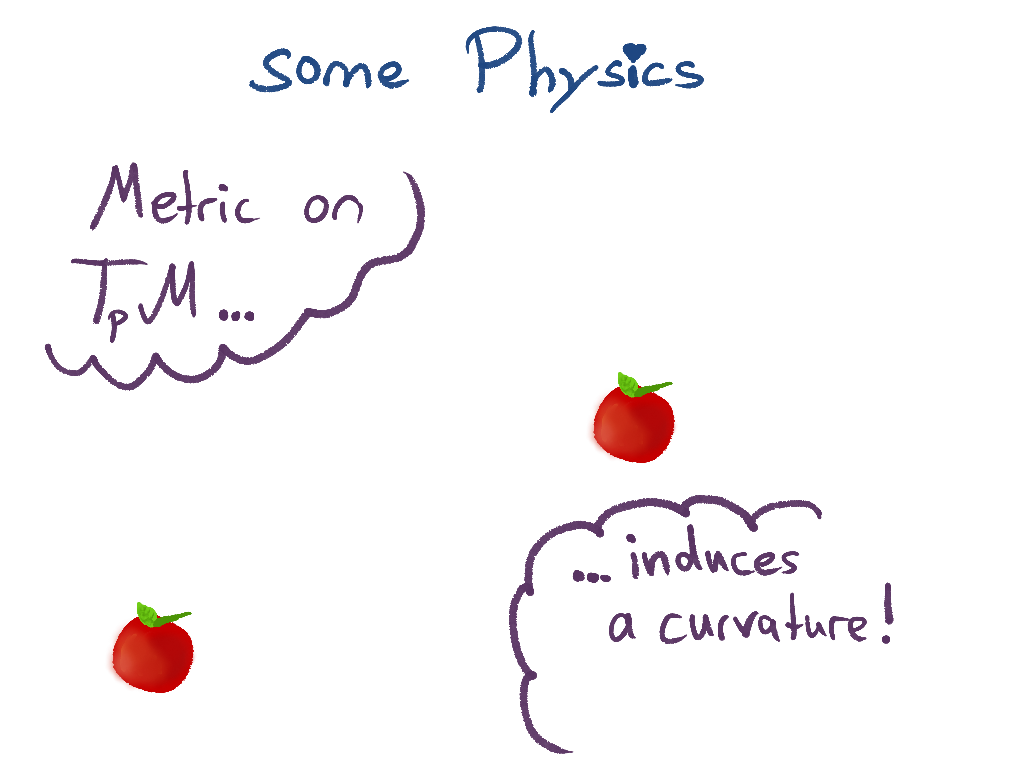 some Physics
Metric on
TpM...
... induces
a curvature!